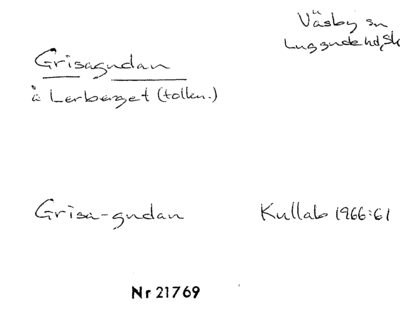 Väsby sn
Luggude hd, Sk
Grisagudan
å Lerberget (tollen.)
Grisa-gudan
Kullab 1966:61
Nr 21769